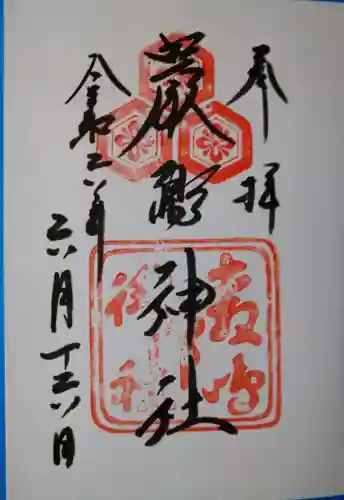 奉拝
嚴島神社
令和六年
六月十六日